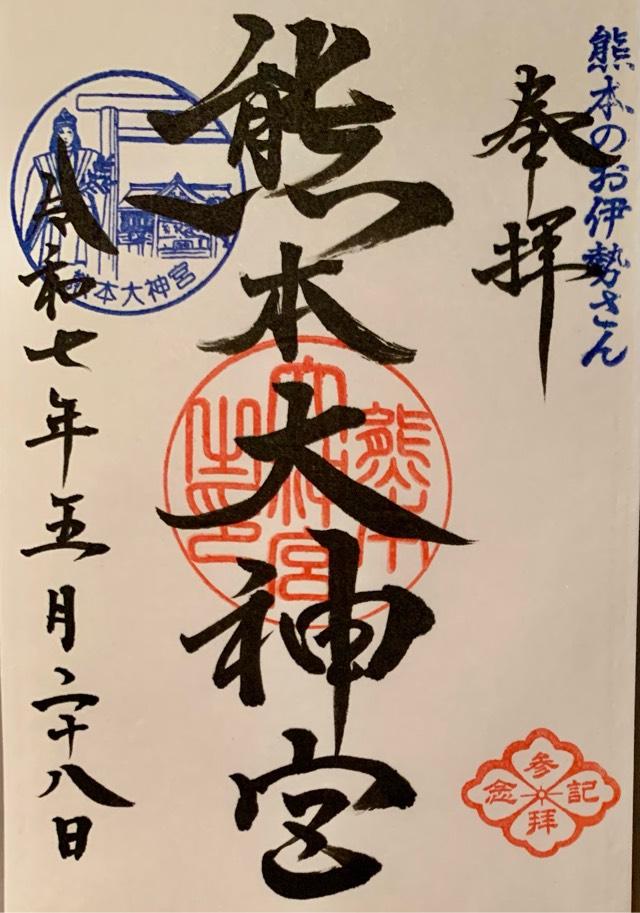 熊本のお伊勢さん
奉拝
熊本大神宮
熊本大神宮之印
参拝記念
熊本大神宮
令和七年五月二十八日